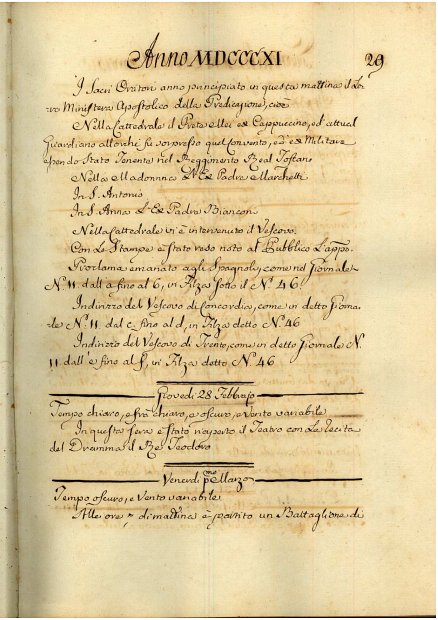 Anno MDCCCXI 29
I Sacri Oratori anno principiato in questa mattina il Lo-
ro Ministero Apostolico della Predicazione, cioè
Nella Cattedrale il Prete Mei Ex Cappuccino, ed attual
Guardiano allorchè fu soppresso quel Convento, ed è Ex Militare
essendo Stato Tenente nel Reggimento Real Toscano
Nella Madonnina L'Ex Padre Marchetti
In S. Antonio
In S. Anna L'Ex Padre Bianconi
Nella Cattedrale vi è intervenuto il Vescovo.
Con Le Stampe è Stato reso noto al Pubblico L'appo.
Proclama emanato agli Spagnoli, come nel Giornale
N.º 11. dall a fino al 6, in Filza Sotto il N.º 46
Indirizzo del Vescovo di Concordia, come in detto Giorna-
le N.º 11. dal c fino al d, in Filza detto N.º 46
Indirizzo del Vescovo di Trento, come in detto Giornale N.
11. dall'e fino al f, in Filza detto N.º 46
Giovedi 28 Febbrajo
Tempo chiaro, e fra chiaro, e oscuro, e vento variabile
In questa sera è Stato riaperto il Teatro con La recita
del Dramma il Re Teodoro
Venerdi p.mo Marzo
Tempo oscuro, e Vento variabile
Alle ore di mattina è partito un Battaglione di